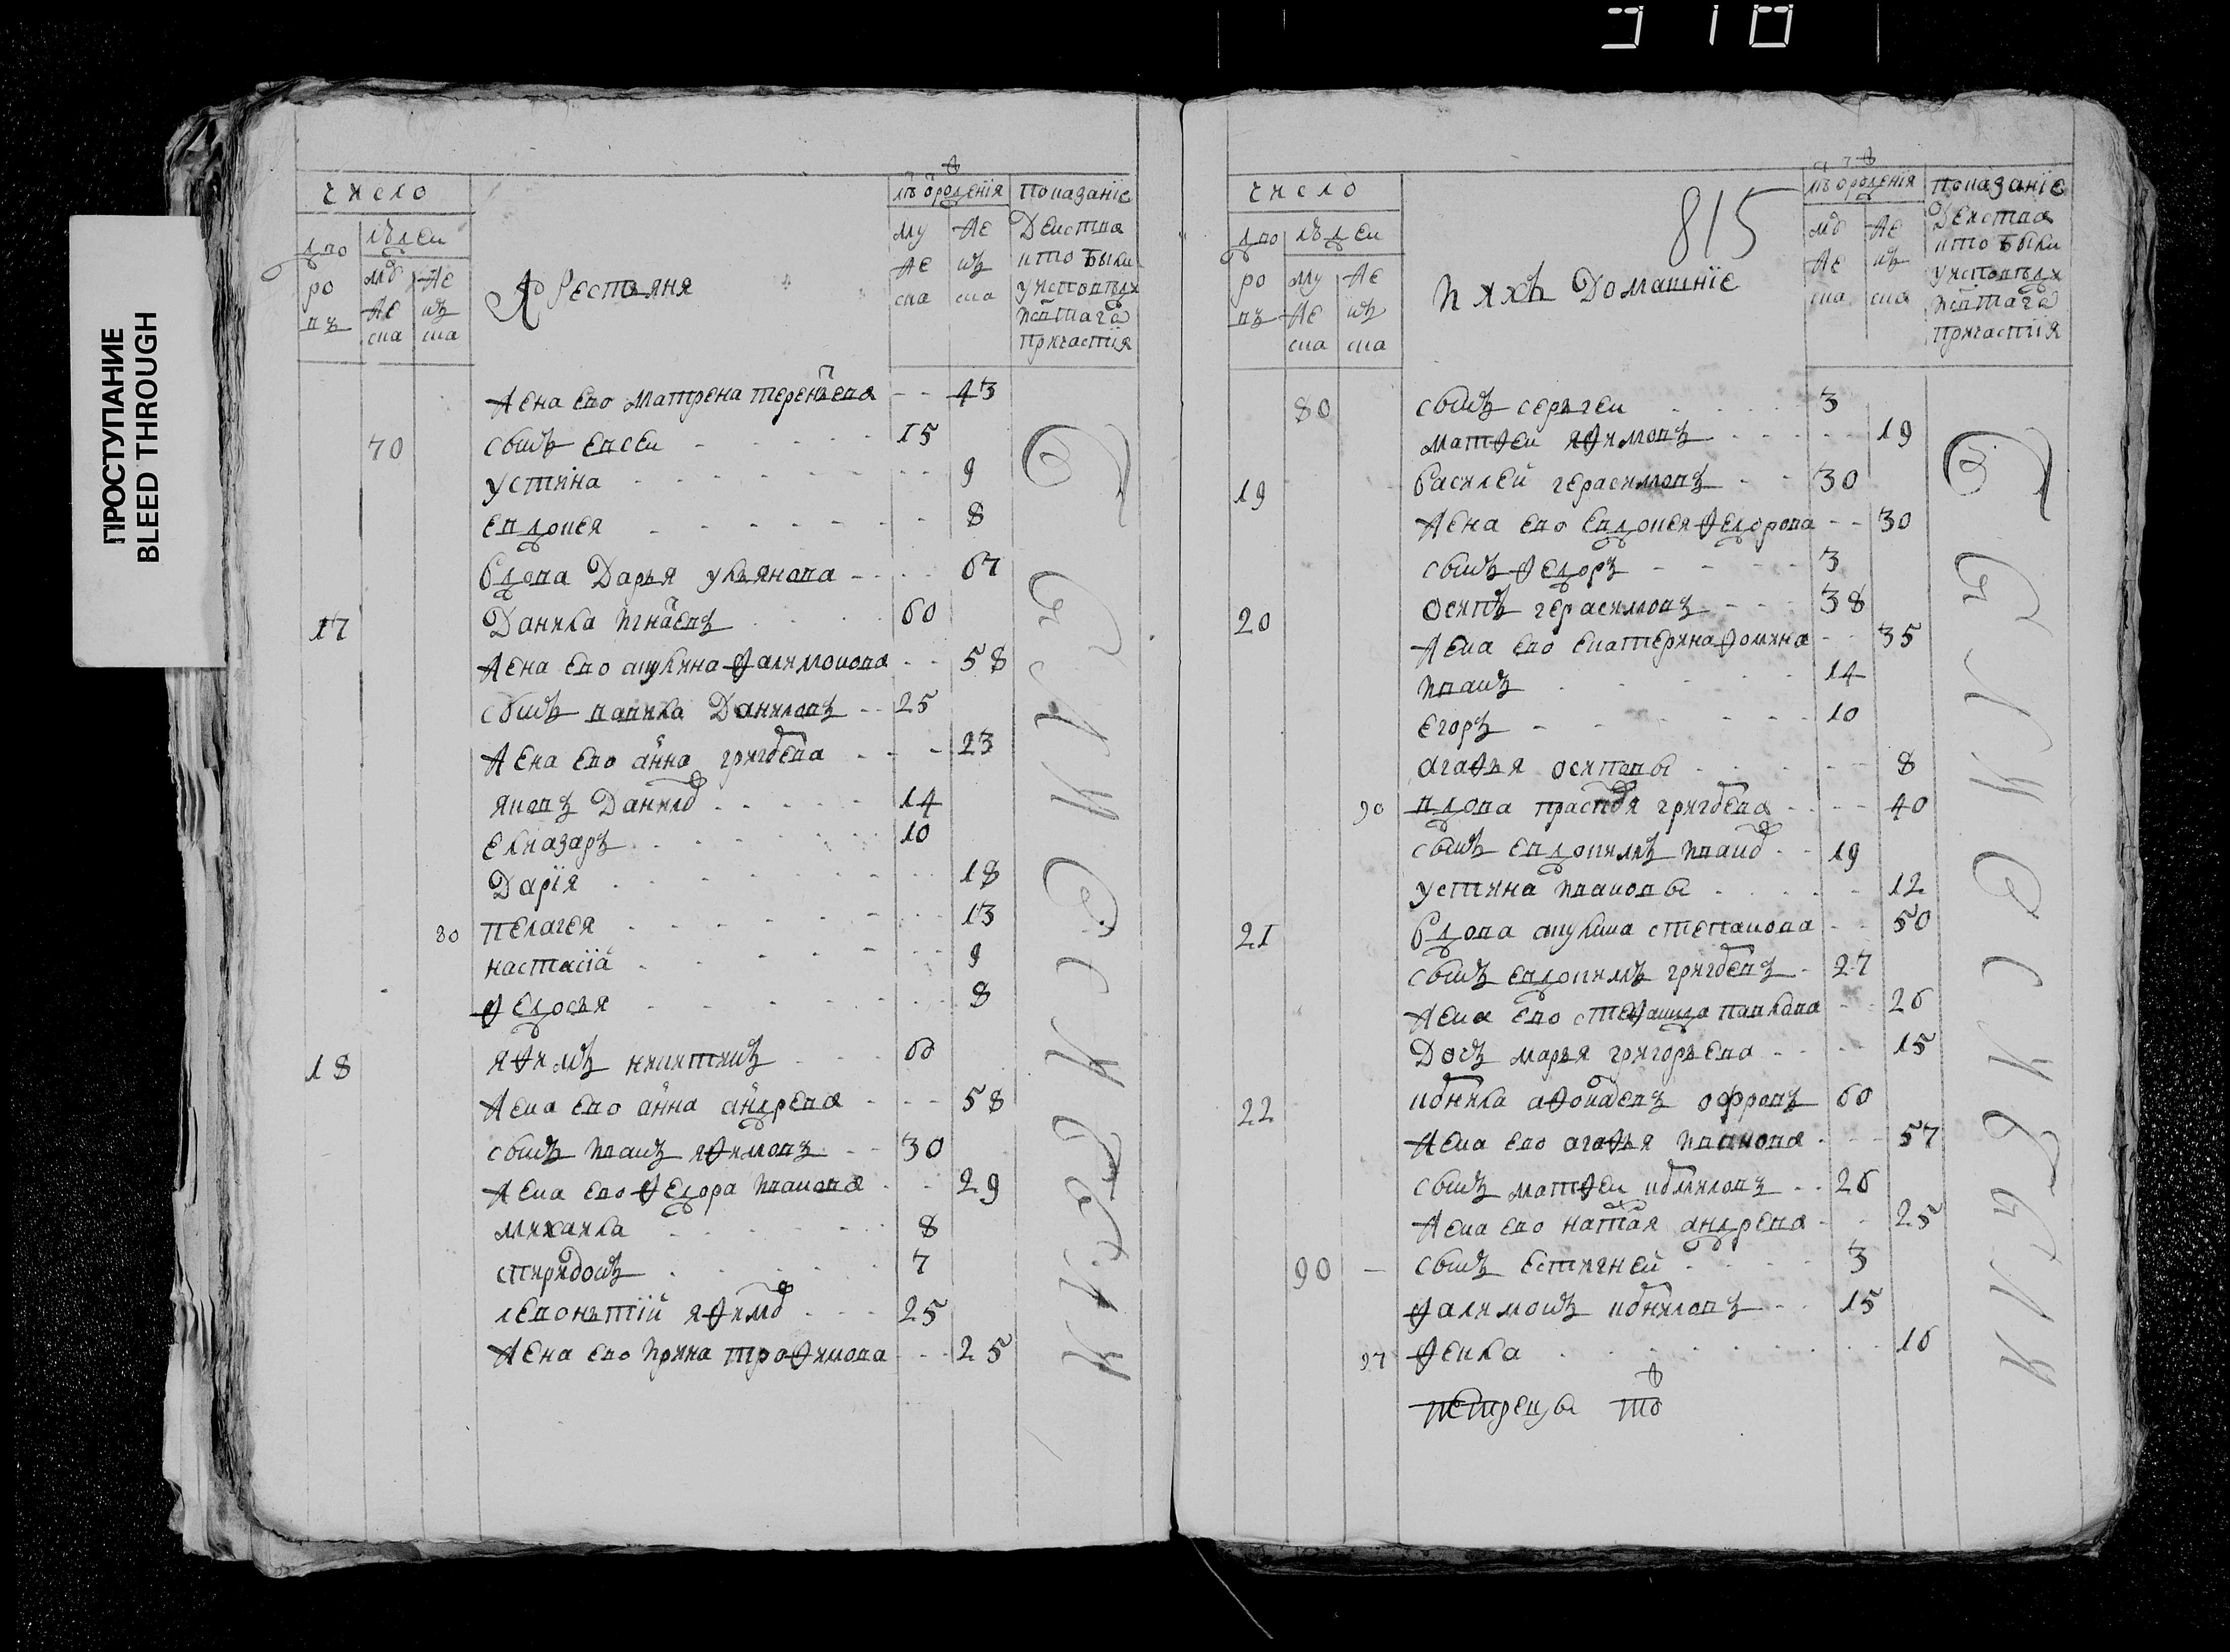 910
ПРОСТУПАНИЕ
BLEED THROUGH
число
дворовъ
людей
мужеска
женска
Крестьяня
лѣта от рожденія
мужеска
женска
показаніе
действа
кто были
у исповеди
и святаго
причастія
жена ево матрена терентьева 43
70 сынъ евсей 15
устина 9
евдокея 8
вдова Дарья ульянова 67
17 Данила игнатьевъ 60
жена ево акулина филимонова 58
сынъ вавила Даниловъ 25
жена ево анна григорьева 23
яковъ Данилов 14
елиазаръ 10
Дарія 18
80 пелагея 13
настасіа 9
федосья 8
18 яфимъ никитинъ 60
жена ево анна андрева 58
сынъ иванъ яфимовъ 30
жена ево федора иванова 29
михаила 8
спиридонъ 7
левонътій яфимов 25
жена ево ирина трофимова 25
Были
815
число
дворовъ
людей
мужеска
женска
и ихъ Домашніе
лѣта от рожденія
мужеска
женска
показаніе
действа
кто были
у исповеди
и святаго
причастія
80 сынъ серьгеи 3
матфеи яфимовъ 19
19 Василей герасимовъ 30
жена ево евдокея федорова 30
сынъ федоръ 3
20 осипъ герасимовъ 38
жена ево екатерина фомина 35
иванъ 14
егоръ 10
агафья осиповы 8
90 вдова прасковя григорева 40
сынъ евдокимъ иванов 19
устина ивановы 12
21 вдова акулина степанова 50
сынъ евдокимъ григоревъ 27
жена ево стефанида павлова 26
Дочь марья григорьева 15
22 корнила афонасевъ 60
жена ево агафья иванова 57
сынъ матфеи корниловъ 26
жена ево наталя андрева 25
90 сынъ естигней 3
филимонъ корниловъ 15
97 фекла 16
Были